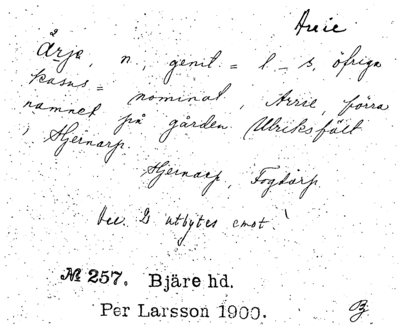 Arrie
Ärje, n., genit. = l – s, öfriga
kasus = nominat., Arrie, förra
namnet på gården Ulriksfält
i Hjernarp
Hjernarp, Fogdarp
utbytes emot
№ 257. Bjäre hd.
Per Larsson 1900.